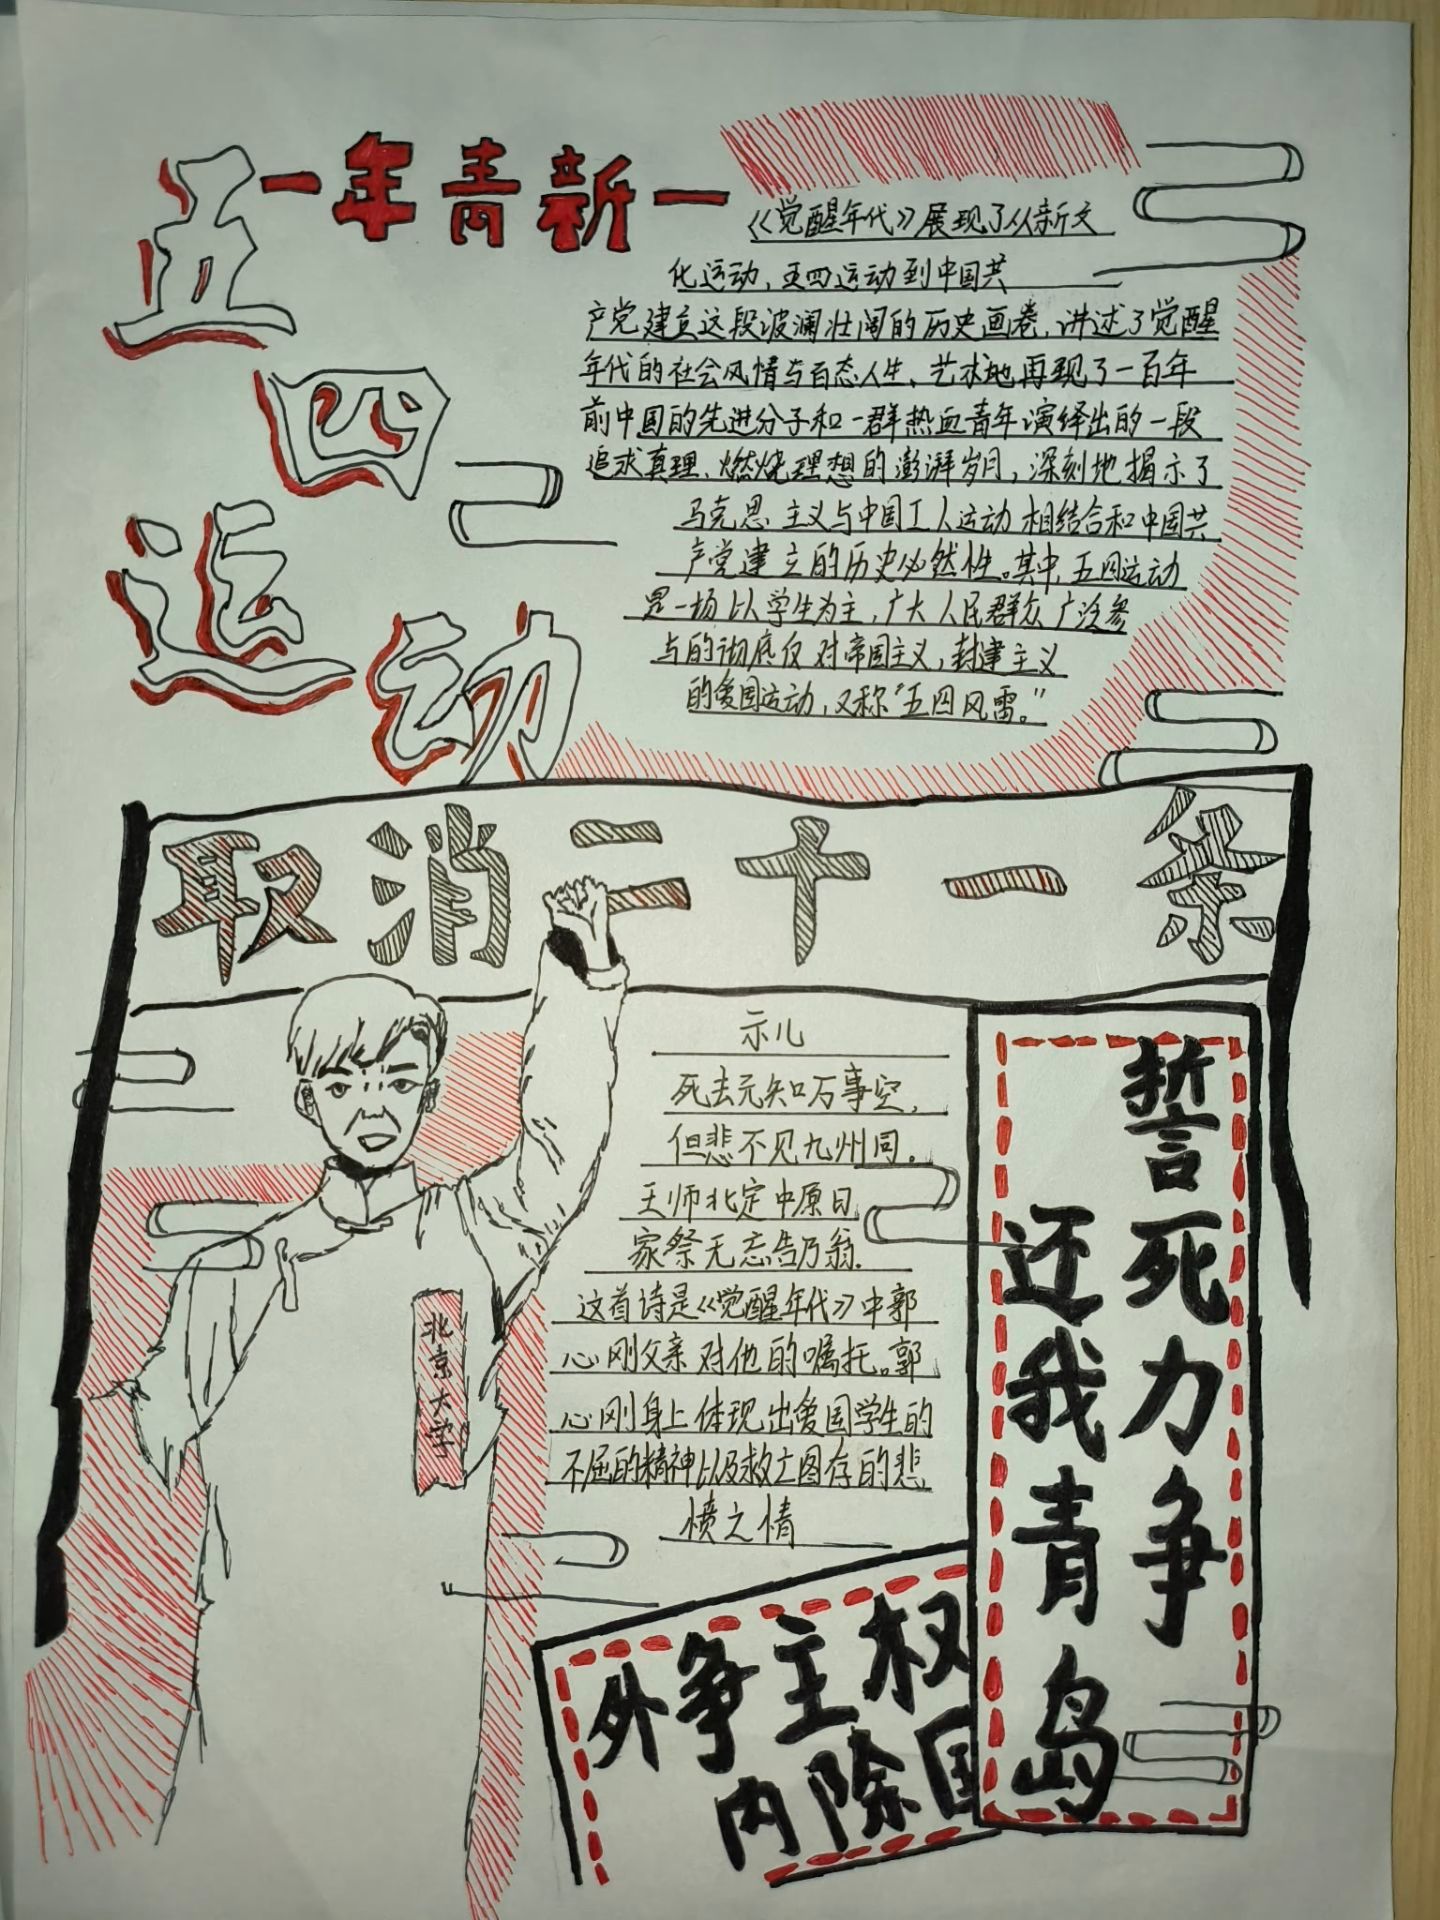 五四运动
一年青新一
《觉醒年代》展现了从新文
化运动、五四运动到中国共
产党建立这段波澜壮阔的历史画卷，讲述了觉醒
年代的社会风情与百态人生、艺术地再现了一百年
前中国的先进分子和一群热血青年演绎出的一段
追求真理、燃烧理想的澎湃岁月，深刻地揭示了
马克思主义与中国工人运动相结合和中国共
产党建立的历史必然性。其中，五四运动
是一场以学生为主，广大人民群众广泛参
与的彻底反对帝国主义，封建主义
的爱国运动，又称“五四风雷。”
取消二十一条
示儿
死去元知万事空，
但悲不见九州同。
王师北定中原日
家祭无忘告乃翁.
这首诗是《觉醒年代》中郭
心刚父亲对他的嘱托。郭
心刚身上体现出爱国学生的
不屈的精神以及救亡图存的悲
愤之情
北京大学
誓死力争
还我青岛
外争主权
内除国